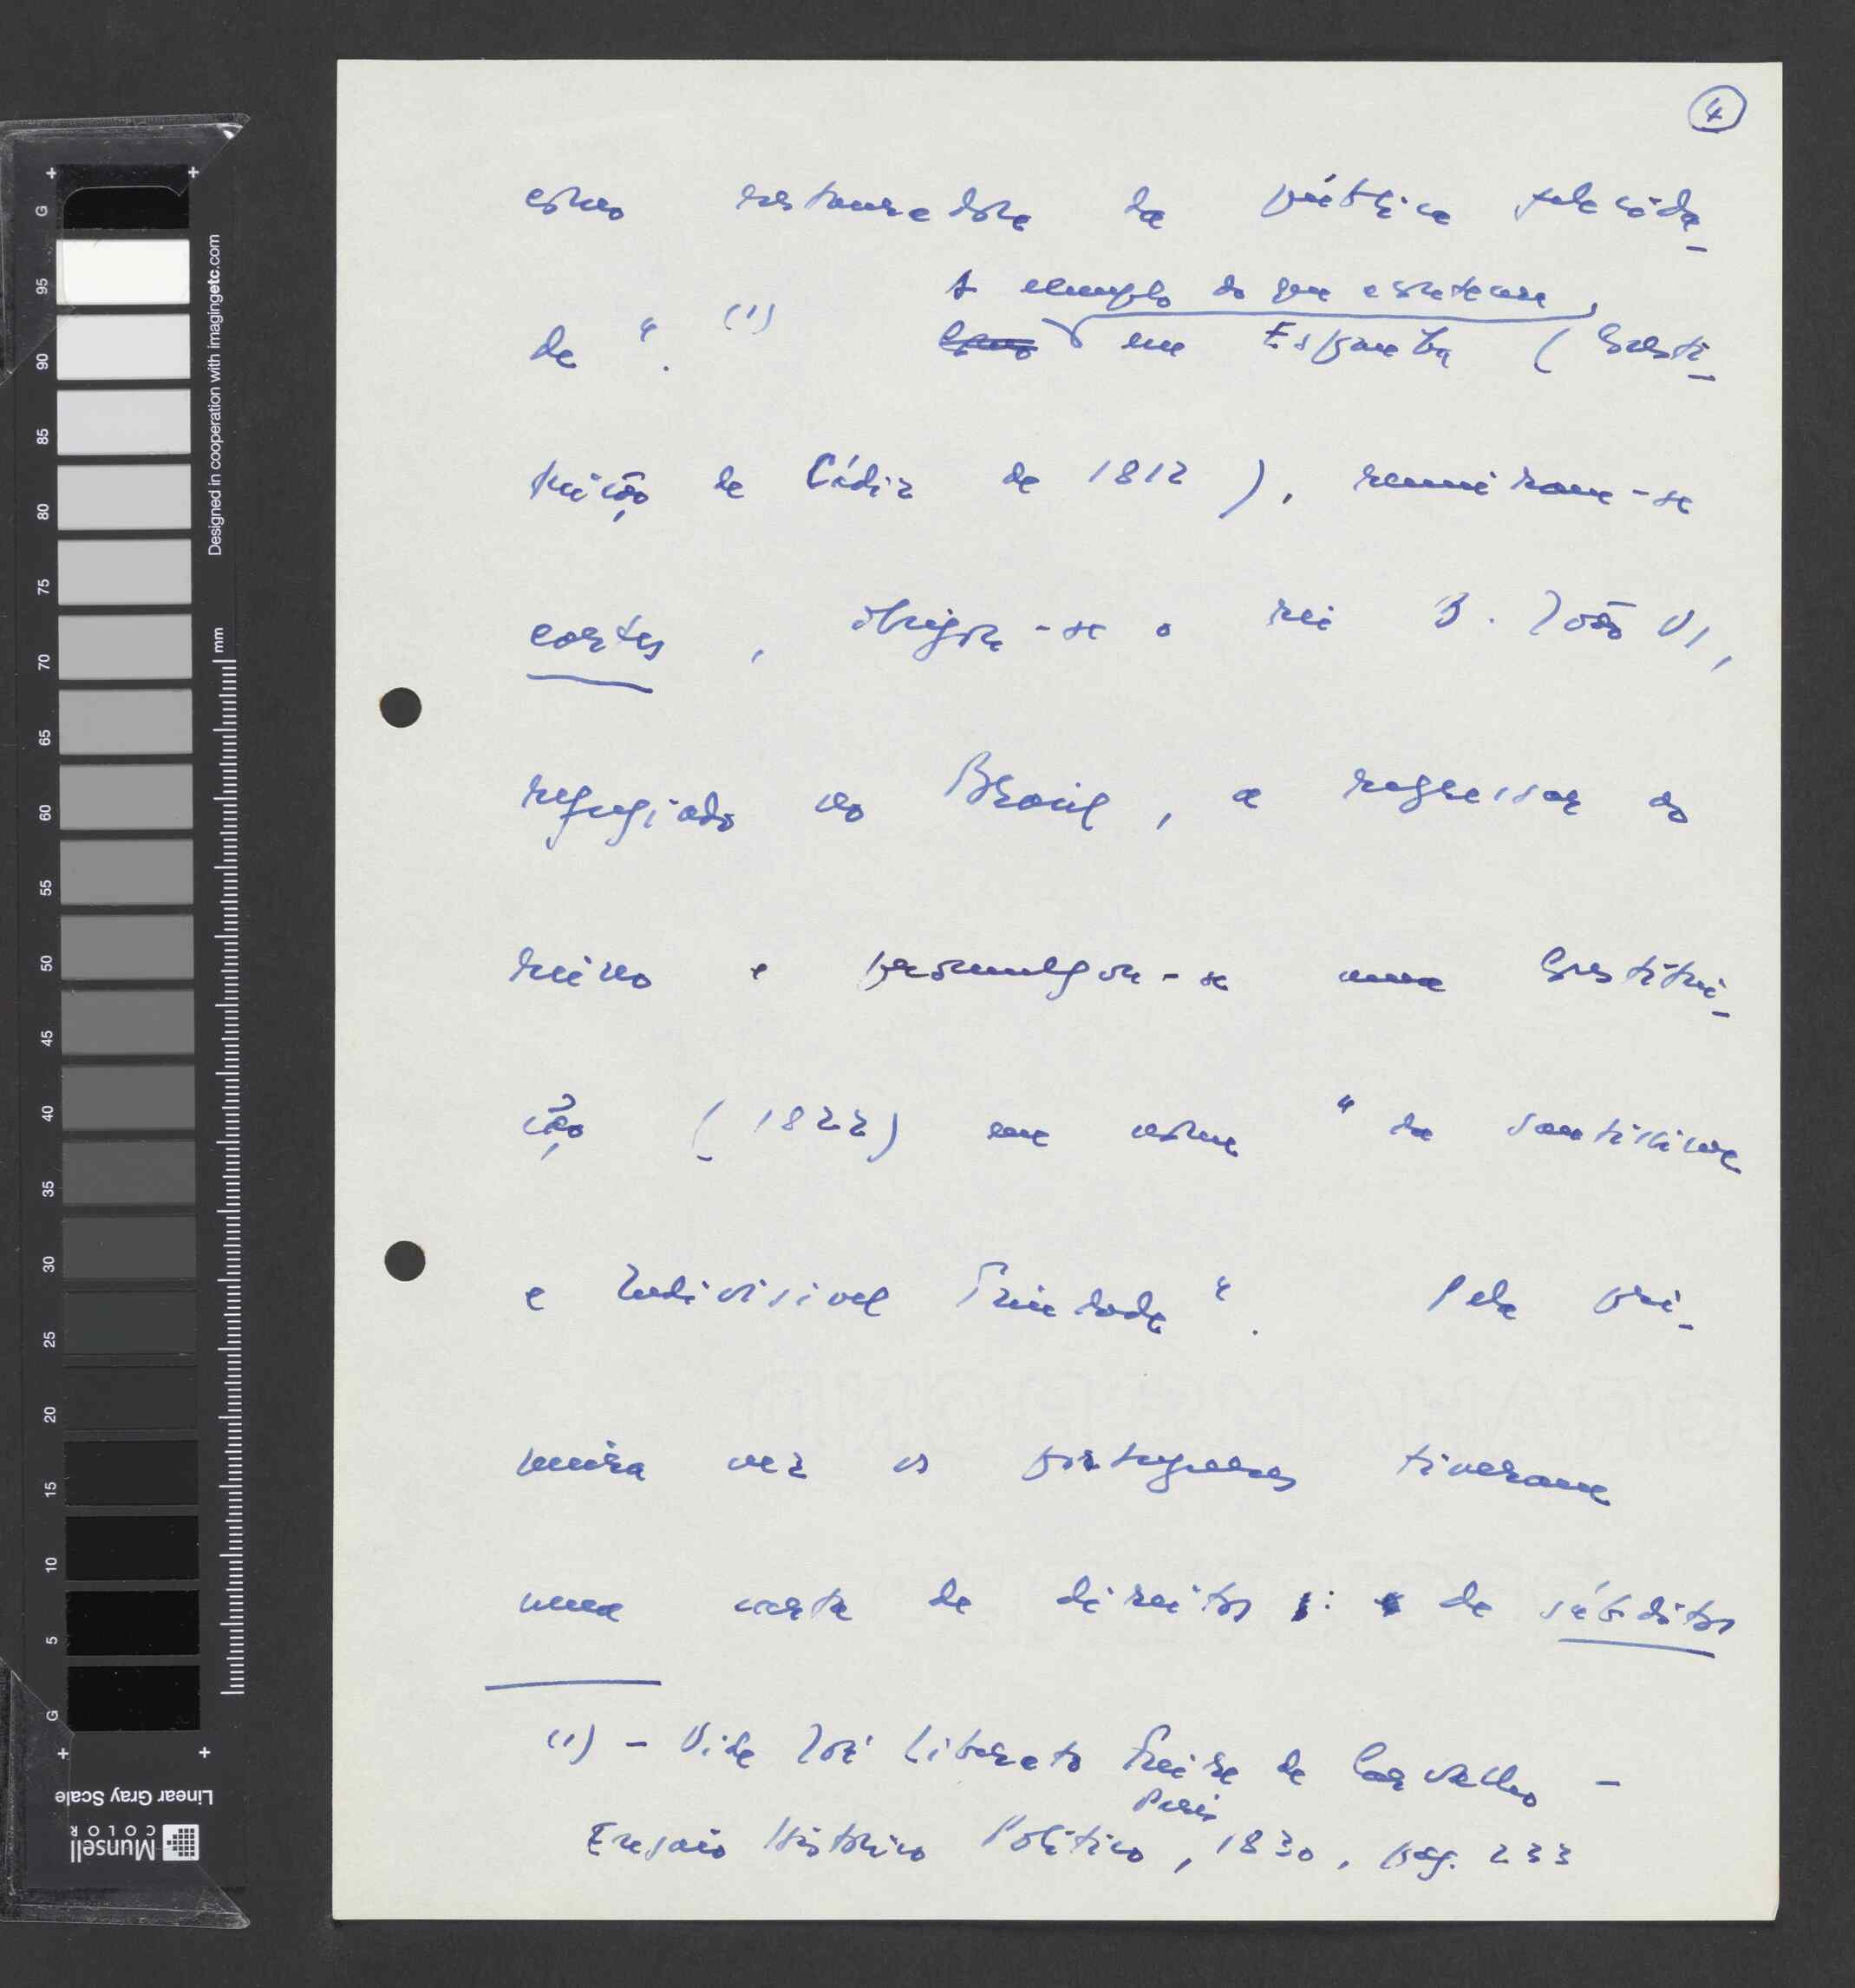 4
como restauradora da pública felicida-
de". (1) A exemplo do que acontecera,
~~Como~~ em Espanha (Consti-
tuição de Cádiz de 1812), reuniram-se
cortes, obrigou-se o rei D. João VI,
refugiado no Brasil, a regressar ao
reino e promulgou-se uma Constitui-
ção (1822) em nome "da santíssima
e Indivisivel Trindade". Pela pri-
meira vez os portugueses tiveram
uma carta de direitos: de súbditos
(1) - Vide José Liberato Freire de Carvalho -
Paris
Ensaio Histórico Político, 1830, pag. 233
G
95
90
85
80
75
70
65
60
55
50
45
40
35
30
25
20
15
10
5
G
mm
Designed in cooperation with imagingetc.com
Linear Gray Scale
Munsell
COLOR